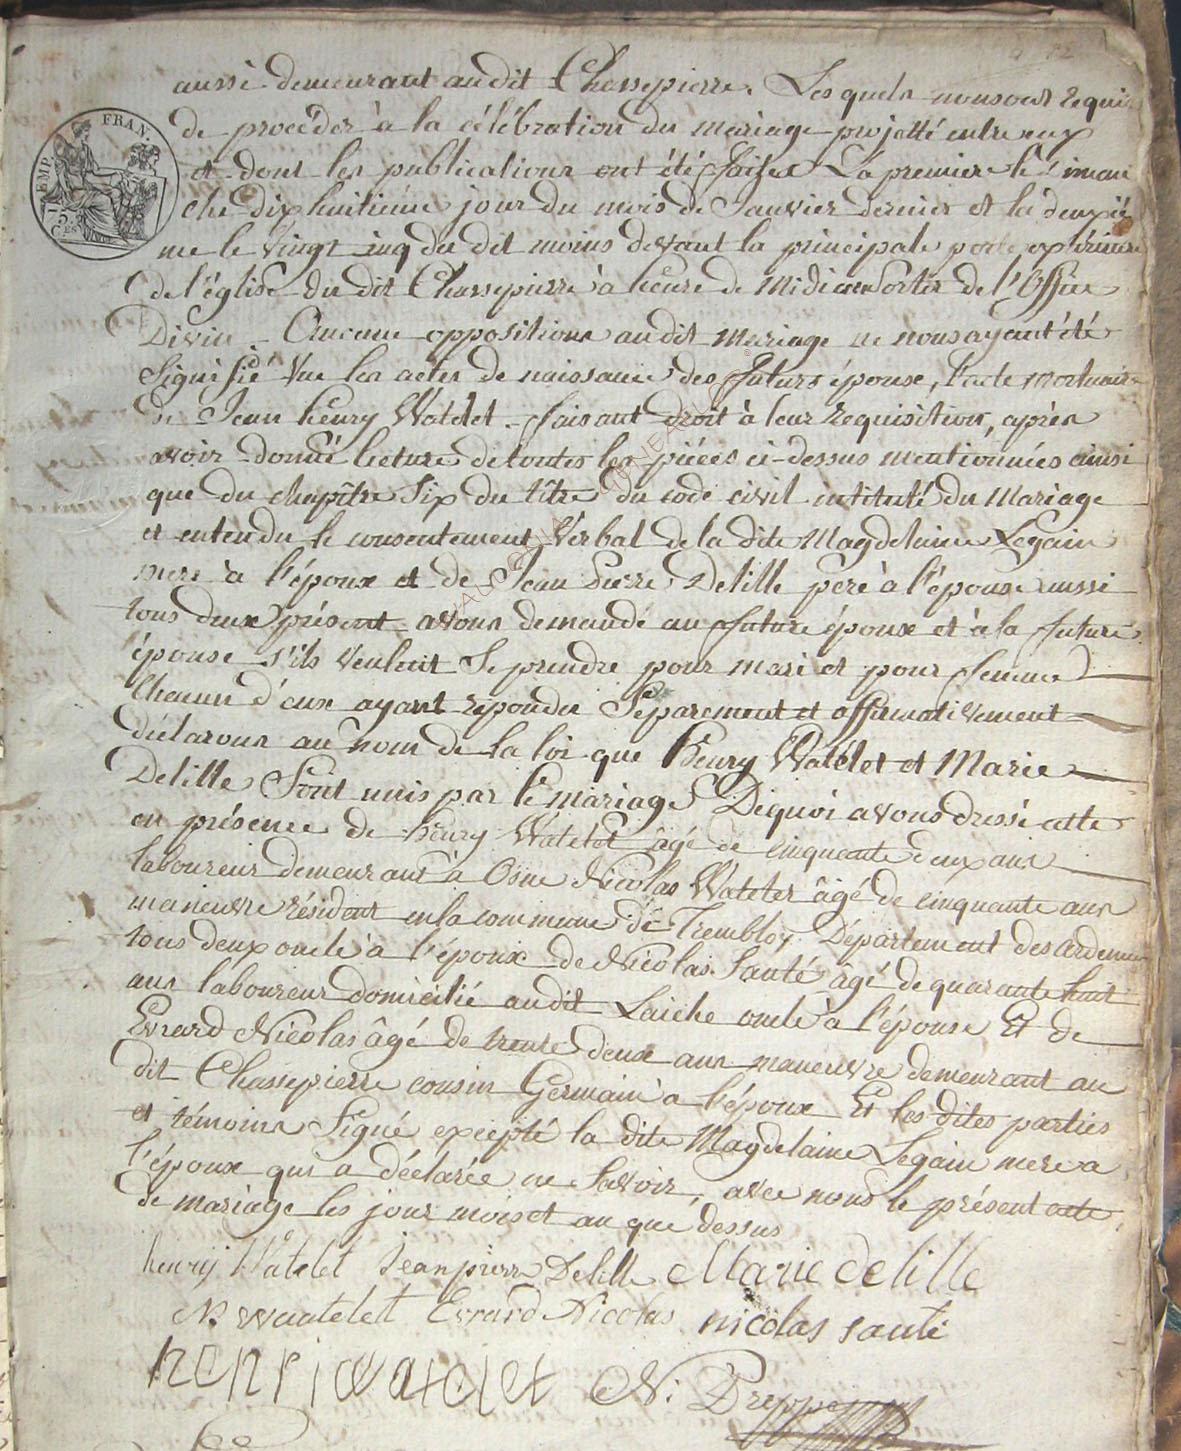 aussi demeurant audit Chassepierre. Les quels nous ont requis
de procéder à la célébration du mariage projetté entre eux
et dont les publications ont été faites La premiere le Diman
che dix huitième jour du mois de Janvier dernier et la deuxiè
me le vingt inq du dit moins devant la principale porte
de l'église du dit Chassepierre à heure de Midi au sortir de l'Office
Divin. Aucune oppositions audit mariage ne nous ayant été
Signifié Vue les actes de naissance des futurs épouse, l'acte mortuaire
de Jean henry Watelet faisant droit à leur requisition, après
avoir donné lecture de toutes les pièces ci-dessus mentionnées ainsi
que du chapitre Six du titre du code civil intitulé du Mariage
et entendu le consentement Verbal de la dite Magdelaine Legain
mere à l'époux et de Jean Pierre Delille père à l'épouse aussi
tous deux présent avons demandé au future époux et à la future
épouse s'ils veulent se prendre pour mari et pour femme
Chacun d'eux ayant répondu Séparément et affirmativement
déclarons au nom de la loi que henry Watelet et Marie
Delille Sont unis par le mariage De quoi avons dressé acte
en présence de henry Watelet âgé de cinquante deux ans
laboureur demeurant à Osne Nicolas Watelet âgé de cinquante ans
maneuvre résident en la commune de Trembloy. Département des ardennes
tous deux oncle à l'époux de Nicolas Santé âgé de quarante huit
ans laboureur domicilié audit Laiche oncle à l'épouse Et de
Evrard Nicolas âgé de trente deux ans maneuvre demeurant au
dit Chassepierre cousin Germain à l'époux Et les dites parties
et témoins Signé excepté la dite Magdelaine Legain mere a
l'époux qui a déclarée ne Savoir, avec nous le présent acte
de mariage les jour mois et an que dessus
henrij Watelet Jean pierre Delille Marie delille
N Waatelet Evrard Nicolas nicolas santé
henri watelet N.
EMP. FRAN.
75
CES